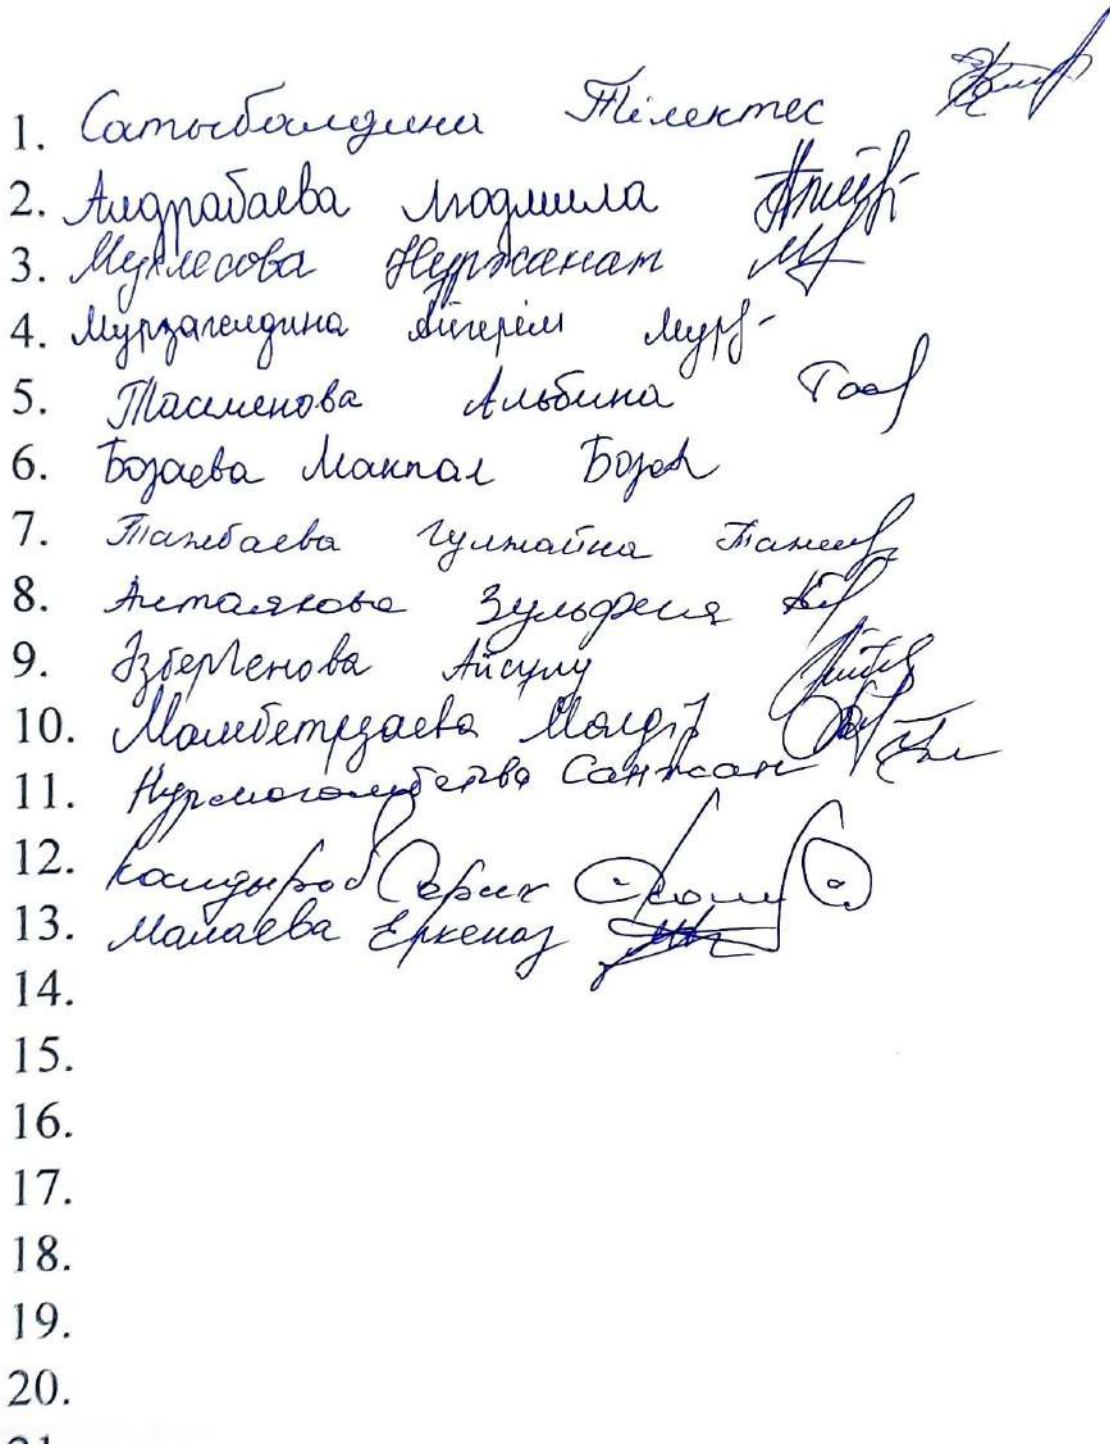 1. Сатыбалдина Тілектес
2. Андрабаева Людмила
3. Мухлесова Нуржанат
4. Мурзагелдина Айгерім Мурз-
5. Тасменова Альбина Таа
6. Бозаева Макпал Боза
7. Танбаева Гулжайна Тан
8. Зульфия
9. Әзбергенова Айсулу
10. Мамбетрзаева Молдір
11. Санжан
12. Серик
13. Малаева Еркеназ
14.
15.
16.
17.
18.
19.
20.
21.